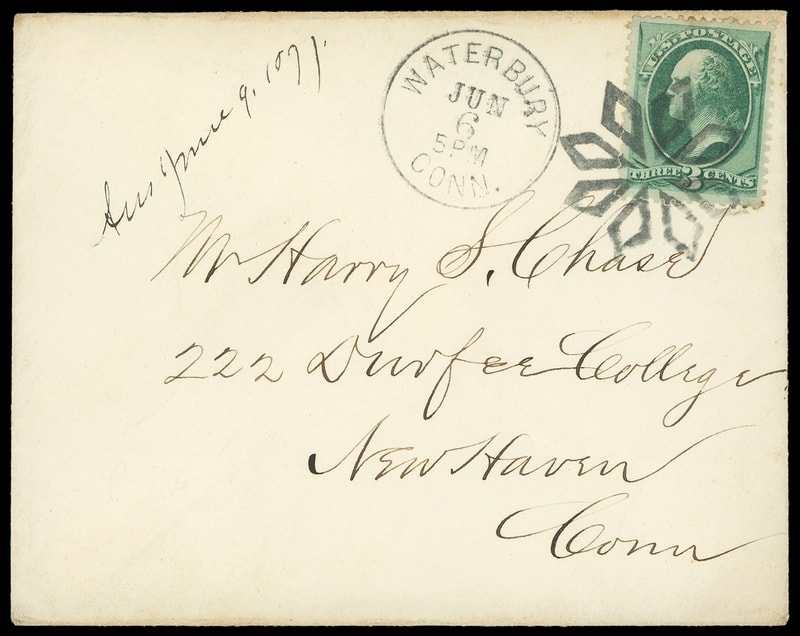 Ans June 9, 1877.
WATERBURY
JUN
6
5PM
CONN.
U.S. POSTAGE
THREE 3 CENTS
Mr Harry S. Chase
222 Durfee College
New Haven
Conn